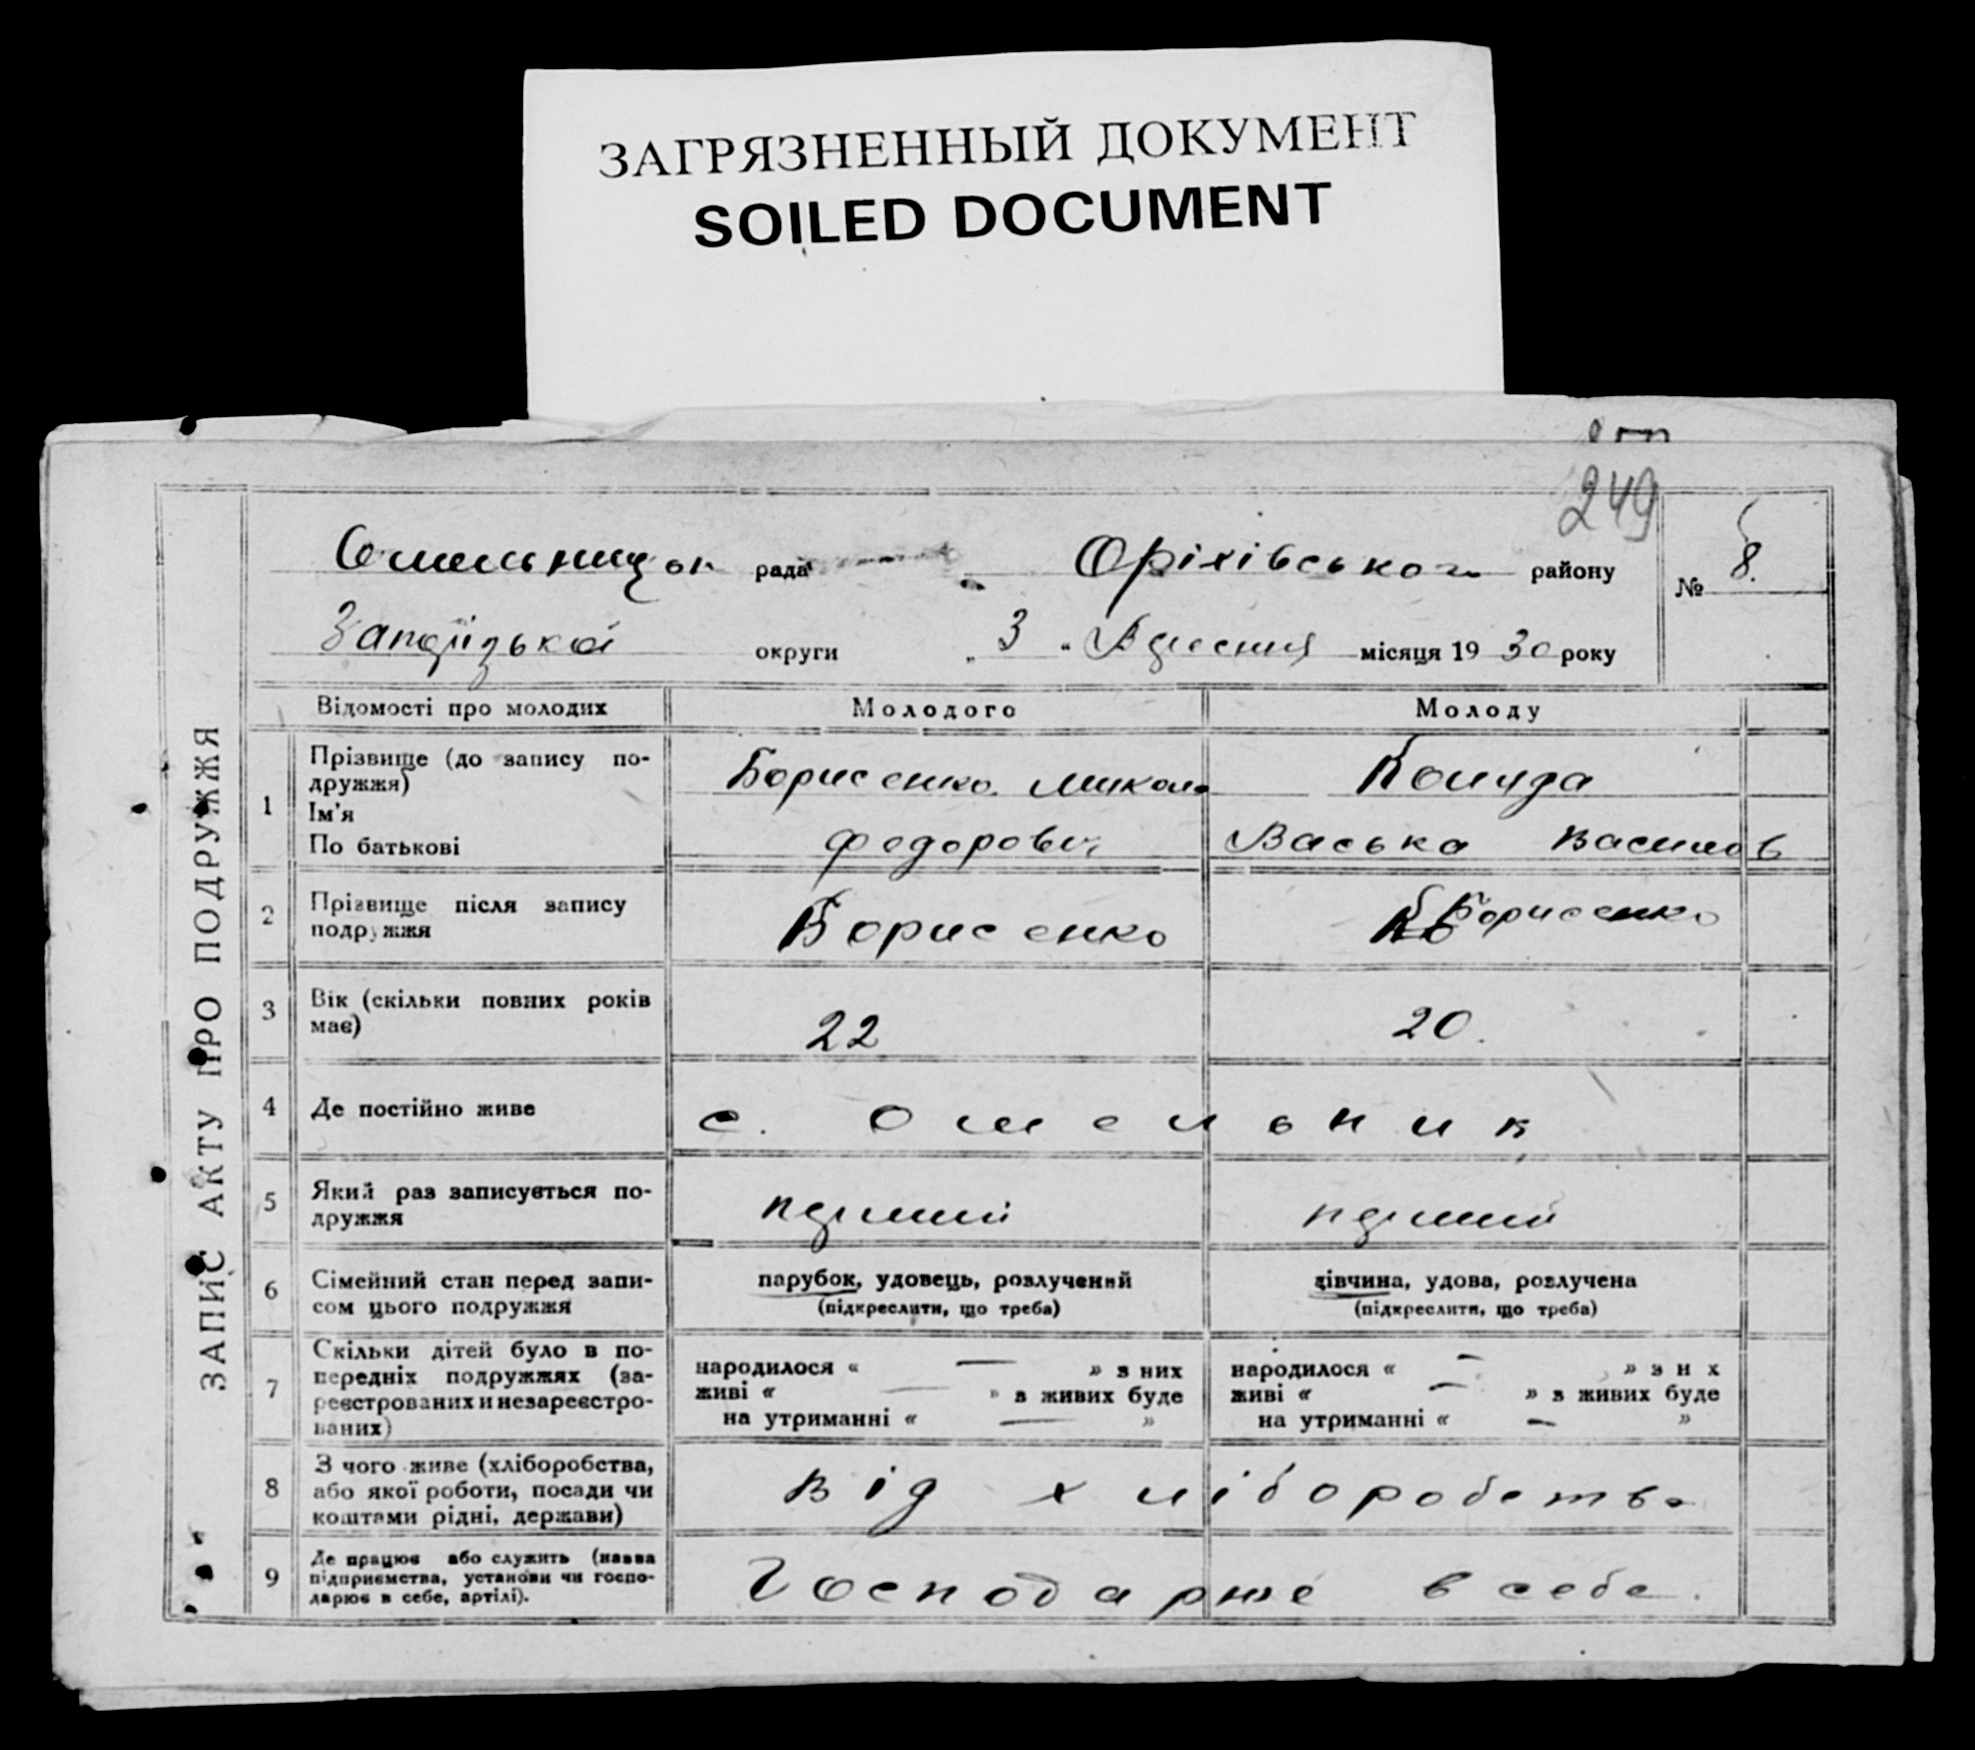 ЗАГРЯЗНЕННЫЙ ДОКУМЕНТ
SOILED DOCUMENT
249
рада Оріхівського району № 8.
округи „ 3 “ Вересня місяця 1930 року
ЗАПИС АКТУ ПРО ПОДРУЖЖЯ
Відомості про молодих Молодого Молоду
1 Прізвище (до запису по-
дружжя)
Ім'я
По батькові
Борисенко Микола
Федорович
Васька Василів
2 Прізвище після запису
подружжя
Борисенко Борисенко
3 Вік (скільки повних років
має)
22 20.
4 Де постійно живе с. Омельник
5 Який раз записується по-
дружжя
перший перший
6 Сімейний стан перед запи-
сом цього подружжя
парубок, удовець, розлучений
(підкреслити, що треба)
дівчина, удова, розлучена
(підкреслити, що треба)
7 Скільки дітей було в по-
передніх подружжях (за-
реєстрованих и незареєстро-
ваних)
народилося « — » з них
живі « — » в живих буде
на утриманні « — »
народилося « — » з н х
живі « — » в живих буде
на утриманні « — »
8 З чого живе (хліборобства,
або якої роботи, посади чи
коштами рідні, держави)
від хліборобства
9 Де працює або служить (назва
підприємства, установи чи госпо-
дарює в себе, артілі).
Господарює в себе.